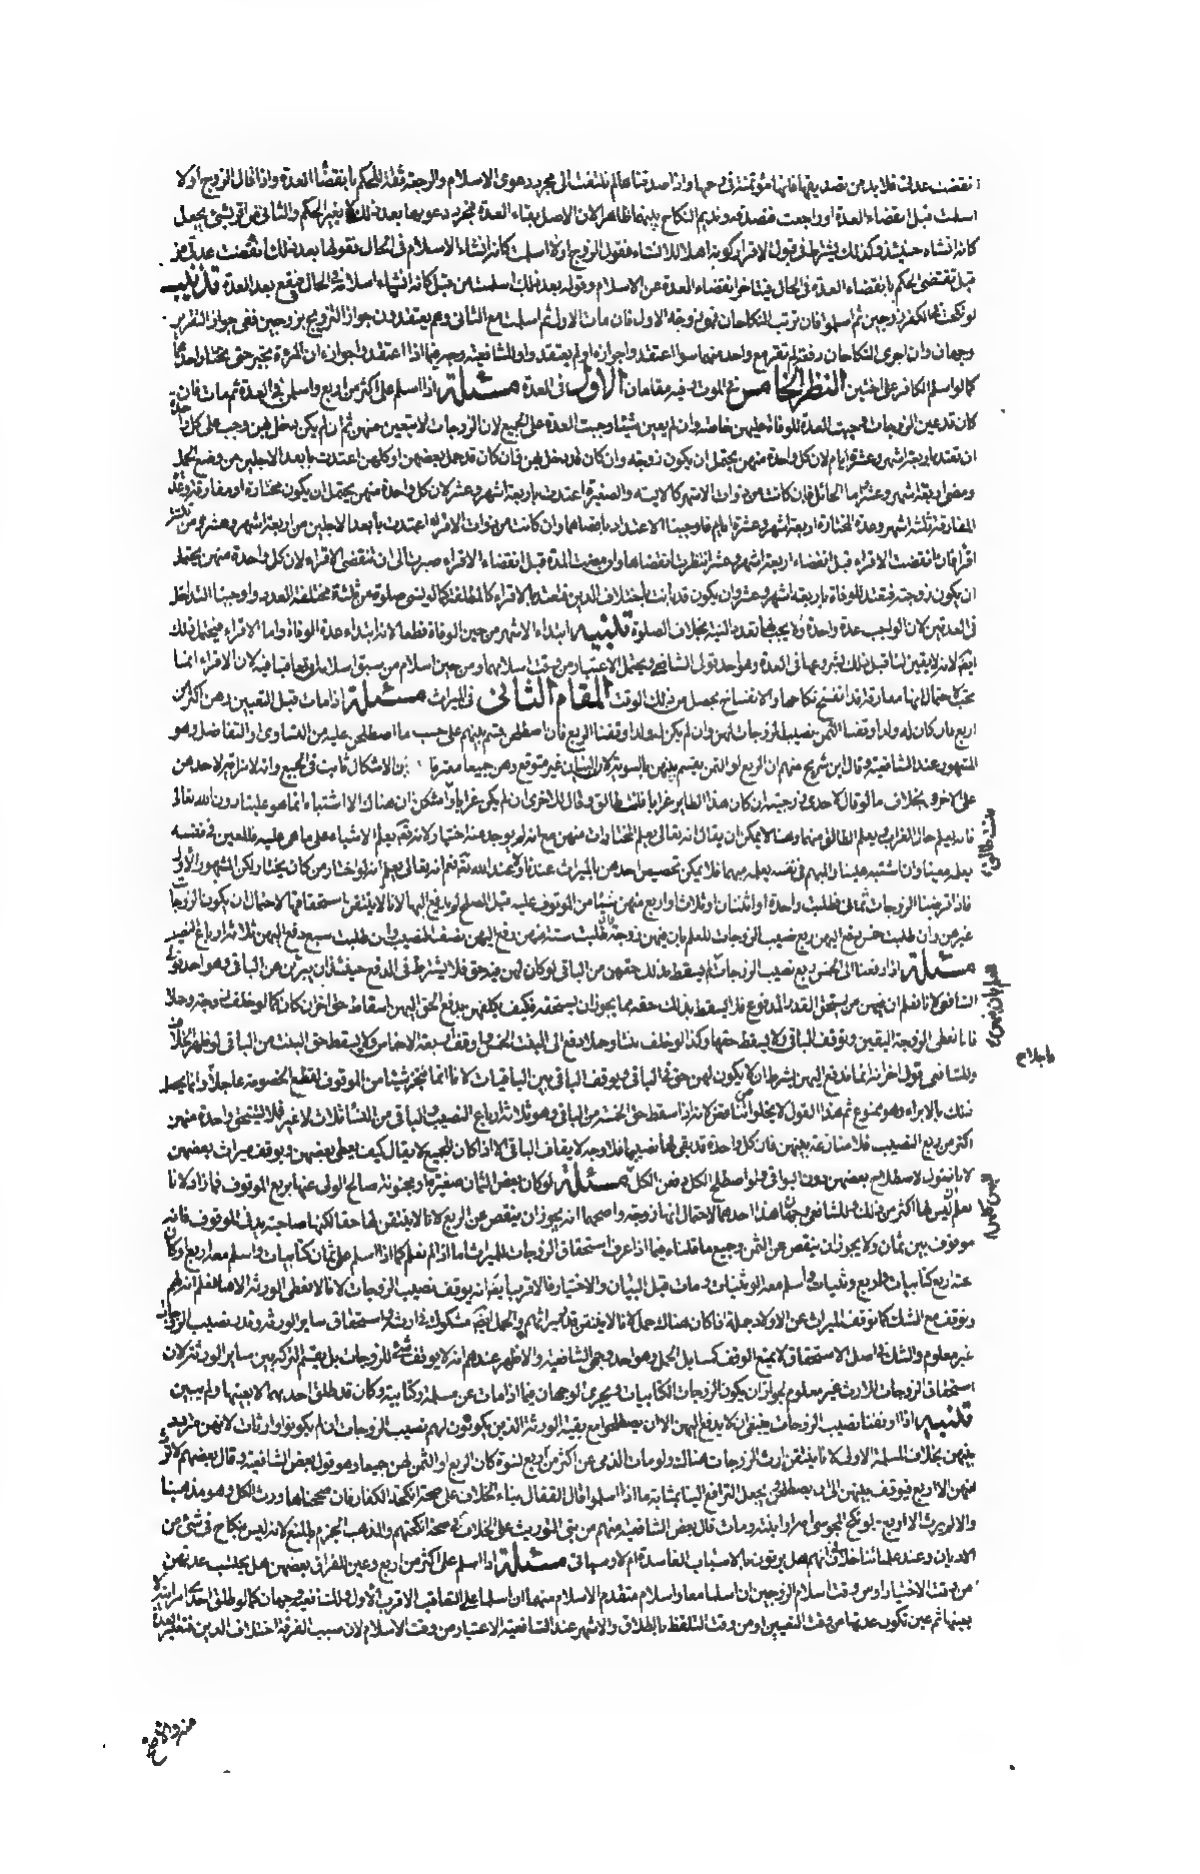 نقضت عدتى فلا بد من تصديقها فانها مؤتمنة فى رحمها واذا صدقناها لم نلتفت الى مجرد دعوى الاسلام والرجعة فقد الحكم بانقضاء العدة واذا قال الزوج اولا
اسلمت قبل انقضاء العدة او راجعت فنصدقه ونديم النكاح بينهما ظاهرا لان الاصل بقاء العدة فمجرد دعويها بعد ذلك لا يغير الحكم والثانى من قول شئ يجعل
كانه انشاءه حينئذ وكذلك يشترط فى قبول الاقرار كونه اهلا للانشاء فقول الزوج اولا اسلمت كانه انشاء الاسلام فى الحال فقولها بعد ذلك انقضت عدتى من
قبل تقتضى الحكم بانقضاء العدة فى الحال فيتاخر انقضاء العدة عن الاسلام وقوله بعد ذلك اسلمت من قبل كانه انشاء اسلامه فى الحال فيقع بعد العدة تذنيب
لو نكحت فى الكفر زوجين ثم اسلموا فان ترتب النكاحان فهى زوجة الاول فان مات الاول ثم اسلمت مع الثانى وهم يعتقدون جواز التزويج بزوجين ففى جواز التقرير
وجهان وان جرى النكاحان دفعة لم تقر مع واحد منهما سواء اعتقدوا جوازه او لم يعتقدوا وللشافعية وجه فيما اذا اعتقدوا جوازه ان المرءة تخير حتى تختار احدهما
كما لو اسلم الكافر على اختين النظر الخامس فى الموت وفيه مقامان الاول فى العدة مسئلة اذا اسلم على اكثر من اربع واسلمن فى العدة ثم مات فان
كان قد عين الزوجات وجبت العدة للوفاة عليهن خاصة وان لم يعين شيئا وجبت العدة على الجميع لان الزوجات لا يتعين منهن ثم ان لم يكن دخل بهن وجب على كل واحدة
ان تعتد باربعة اشهر وعشرة ايام لان كل واحدة منهن يحتمل ان يكون زوجة وان كان قد دخل بهن فان كان قد حمل بعضهن او كلهن اعتدت بابعد الاجلين من وضع الحمل
ومضى اربعة اشهر وعشر اما الحائل فان كانت من ذوات الاشهر كالايسة والصغيرة اعتدت باربعة اشهر وعشر لان كل واحدة منهن يحتمل ان يكون مختارة او مفارقة وعدة
المفارقة ثلثة اشهر وعدة المختارة اربعة اشهر وعشرة ايام فاوجبنا الاعتداد باقصاهما وان كانت من ذوات الاقراء اعتدت بابعد الاجلين من اربعة اشهر وعشر ومن ثلثة
اقراء فان انقضت الاقراء قبل انقضاء اربعة اشهر وعشر انتظرت انقضاءها ولو مضت المدة قبل انقضاء الاقراء صبرت الى ان تنقضى الاقراء لان كل واحدة منهن يحتمل
ان يكون زوجة فيعتد للوفاة باربعة اشهر وعشر وان يكون قد بانت باختلاف الدين فتعتد بالاقراء
فى العدتين لان الواجب عدة واحدة ولا يجب فيها تعدد النية بخلاف الصلوة تنبيه ابتداء الاشهر من حين الوفاة قطعا لانه ابتداء عدة الوفاة واما الاقراء فيحتمل ذلك
المقام الثانى فى الميراث مسئلة اذا مات قبل التعيين وهن اكثر من
اربع فان كان له ولد اوقفنا الثمن نصيب الزوجات لهن وان لم يكن له ولد اوقفنا الربع فان اصطلحن قسم بينهم على حسب ما اصطلحن عليه من التساوى او التفاضل وهو
المشهور عند الشافعية وقال ابن شريح منهم ان الربع او الثمن يقسم بينهن بالسوية لان البيان غير متوقع وهن جميعا معترفات بان الاشكال ثابت فى الجميع وانه لا مزية لاحدهن
على الاخرى بخلاف ما لو قال لاحدى زوجتيه ان كان هذا الطاير غرابا فانت طالق وقال للاخرى ان لم يكن غرابا واشكل لان هناك الاشتباه انما هو علينا دون الله تعالى
فانه يعلم حال الغراب ويعلم الطالق منهما وهنا لا يمكن ان يقال انه تعالى يعلم المختارات منهن مع انه لم يوجد منه اختيار
فاذا فرضنا الزوجات ثمانى فطلبت واحدة او اثنتان او ثلاث او اربع منهن شيئا من الموقوف عليه قبل الصلح لم يدفع اليها لانا لا نتيقن استحقاقها لاحتمال ان يكون الزوجات
غيرهن وان طلبت خمس دفع اليهن ربع نصيب الزوجات للعلم بان فيهن زوجة وان طلبت ست منهن دفع اليهن نصف النصيب وان طلبت سبع دفع اليهن ثلاثة ارباع النصيب
مسئلة اذا دفعنا الى الخمس ربع نصيب الزوجات لم يسقط بذلك حقهن من الباقى لو كان لهن فيه حق فلا يشترط فى الدفع حينئذ ان يبرئن عن الباقى وهو احد قولى
الشافعى لانا نعلم ان فيهن من يستحق القدر المدفوع فلا يسقط بذلك حقه مما يجوز ان يستحقه فكيف يكلفهن بدفع الحق اليهن اسقاط حق اخر ان كان كما لو خلف زوجة وحملا
فانا نعطى الزوجة اليقين ونوقف الباقى ولا يسقط حقها وكذا لو خلف بنتا وحملا دفع الى البنت الخمس واوقف اربعة الاخماس ولا يسقط حق البنت من الباقى
وللشافعى قول اخر انه انما يدفع اليهن بشرط ان لا يكون لهن حق فى الباقى ويوقف الباقى بين الباقيات لانا انما نخرج شيئا من الموقوف لقطع الخصومة عاجلا وانما يحصل
ذلك بالابراء وهو ممنوع ثم هذا القول لا يخلو
اكثر من ربع النصيب فلا منازعة بينهن فان كل واحدة قد بقى لها نصيبها فلا وجه لايقاف الباقى الا اذا كان للجميع لا يقال كيف يعطى بعضهن ويوقف ميراث بعضهن
لانا نقول لو اصطلح بعضهن دون البواقى ولو اصطلح الكل دفعن الكل مسئلة لو كان بعض الثمان صغيرة او مجنونة صالح الولى عنها بربع الموقوف فما زاد لانا
نعلم ان ليس لها اكثر من ذلك وللشافعى وجهان هذا احدهما لاحتمال انها زوجة واصحهما انه يجوز ان ينقص عن الربع لانا لا نتيقن لها حقا لكنها صاحبة يد فى الموقوف فانه
موقوف بين ثمان ولا يجوز ان ينقص عن الثمن وجميع ما قلناه فيما اذا عرف استحقاق الزوجات للميراث اما اذا لم نعلم كما اذا اسلم على ثمان كتابيات واسلم معه اربع او كان
عنده اربع كتابيات واربع وثنيات واسلم معه الوثنيات ومات قبل البيان والاختيار فالاقرب ايضا انه يوقف نصيب الزوجات لانا لا نعطى الورثة الا ما نعلم انه لهم
ونوقف مع الشك كما نوقف الميراث عن الاولاد جملة اذا كان هناك حمل
غير معلوم والشك فى اصل الاستحقاق لا يمنع الوقف كمسايل الحمل وهو احد وجهى الشافعية والاظهر عندهم انه لا يوقف شئ للزوجات بل يقسم التركة بين ساير الورثة لان
استحقاق الزوجات للارث غير معلوم لجواز ان يكون الزوجات الكتابيات ويجرى الوجهان فيما اذا مات عن مسلمة وكتابية وكان قد طلق احديهما لا بعينها ولم يبين
تنبيه اذا وقفنا نصيب الزوجات فينبغى ان لا يدفع اليهن الا ان يصطلحن مع بقية الورثة الذين يكون لهم نصيب الزوجات ان لم يكونوا وارثات
بينهن بخلاف المسئلة الاولى لانا نتيقن ارث الزوجات هناك ولو مات الذمى عن اكثر من اربع نسوة كان الربع او الثمن لهن جميعا وهو قول بعض الشافعية وقال بعضهم
منهن الا اربع فيوقف بينهن الى ان يصطلحن ويجعل الترافع الينا بمثابة ما اذا اسلموا قال القفال بناء الخلاف على صحة انكحة الكفار فان صححناها ورث الكل وهو مذهبنا
والا لم يرث الا اربع ولو نكح المجوسى امه او ابنته ومات قال بعض الشافعية منهم من بنى التوريث على الخلاف فى صحة انكحتهم والمذهب الجزم بالمنع لانه ليس بنكاح فى شئ من
الاديان وعند علمائنا خلاف فى انهم هل يرثون بالاسباب الفاسدة ام لا وسياتى مسئلة اذا اسلم على اكثر من اربع وعين للفراق بعضهن هل يحتسب عدتهن
من وقت الاختيار او من وقت اسلام الزوجين ان اسلما معا او اسلام متقدم الاسلام منهما ان اسلما على التعاقب الاقرب الاول وللشافعية وجهان كما لو طلق احدى امراتيه لا
بعينها ثم عين تكون عدتها من وقت التعيين او من وقت التلفظ بالطلاق والاشهر عند الشافعية الاعتبار من وقت الاسلام لان سبب الفرقة اختلاف الدين فتعتبر العدة